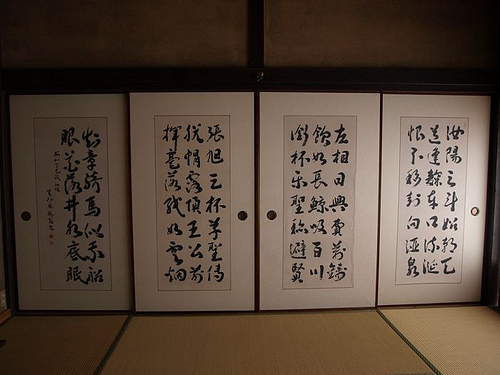 汝陽三斗始朝天
道逢麴車口流涎
恨不移封向酒泉
左相日興費萬錢
飲如長鯨吸百川
銜杯樂聖稱避賢
張旭三杯草聖傳
脱帽露頂王公前
揮毫落紙如雲烟
知章騎馬似乘船
眼花落井水底眠